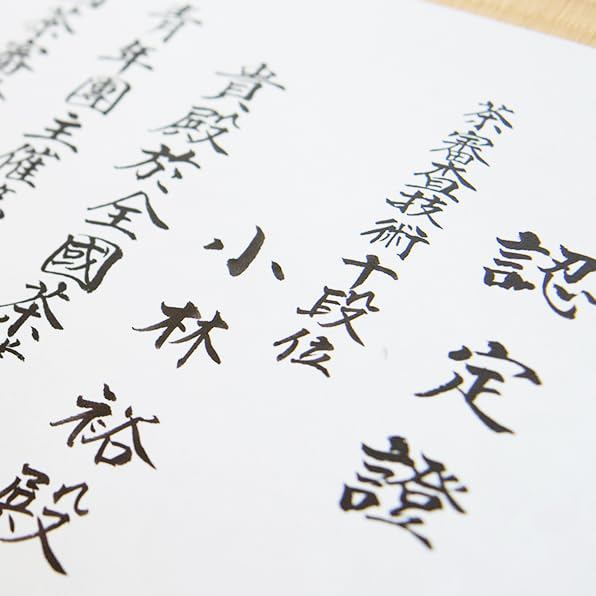 認定證
茶審査技術十段位
小林裕殿
貴殿於全國茶
青年團主催第
茶審